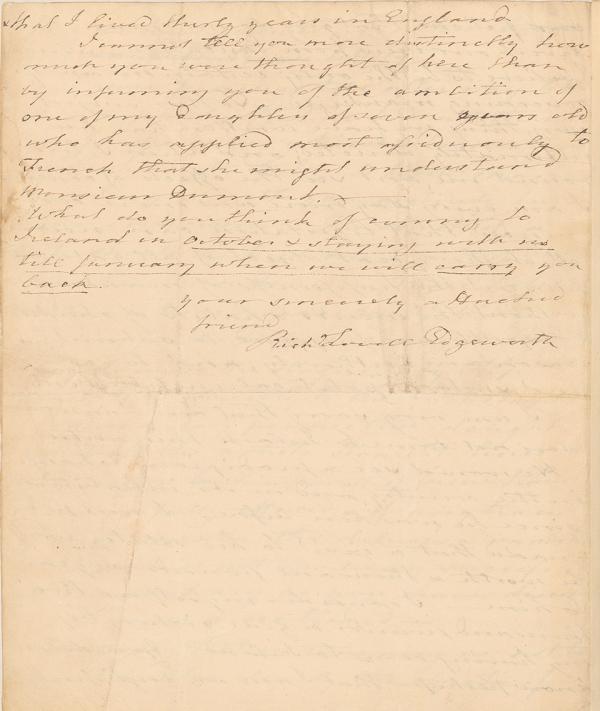 & that I lived thirty years in England
I cannot tell you more distinctly how
much you were thought of here than
by informing you of the ambition of
one of my Daughters of seven years old
who has applied most assiduously to
French that she might understand
Monsieur Dumont.
What do you think of coming to
Ireland in October & staying with us
till January when we will carry you
back.
your sincerely attached
friend
Rich Lovell Edgeworth